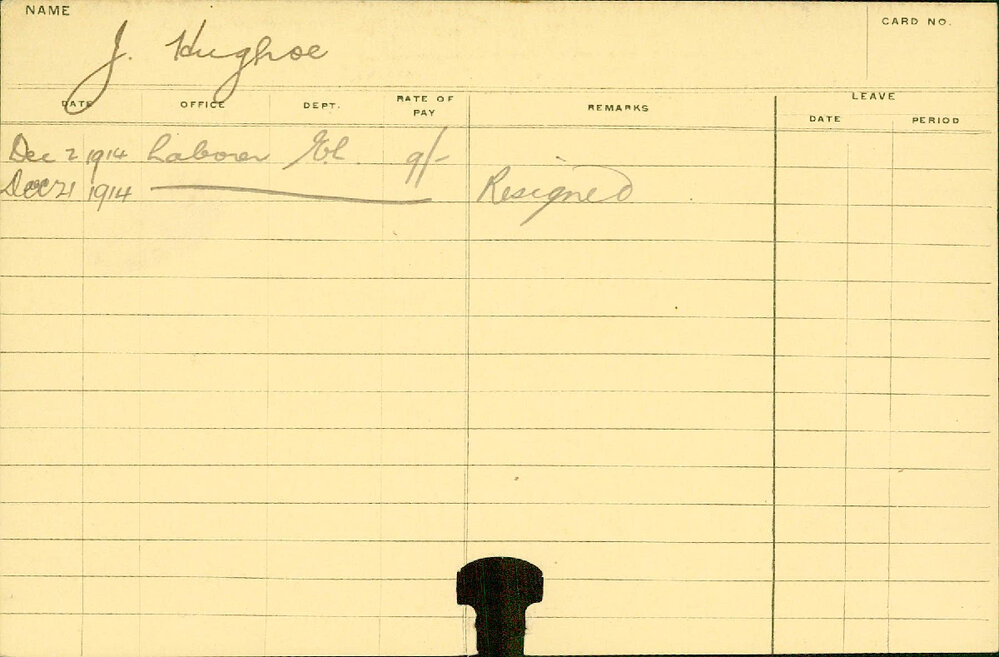 NAME
J. Hughoe
CARD NO.
DATE OFFICE DEPT. RATE OF PAY REMARKS LEAVE
DATE PERIOD
Dec 2 1914 Laborer El. 9/-
Dec 21 1914 Resigned